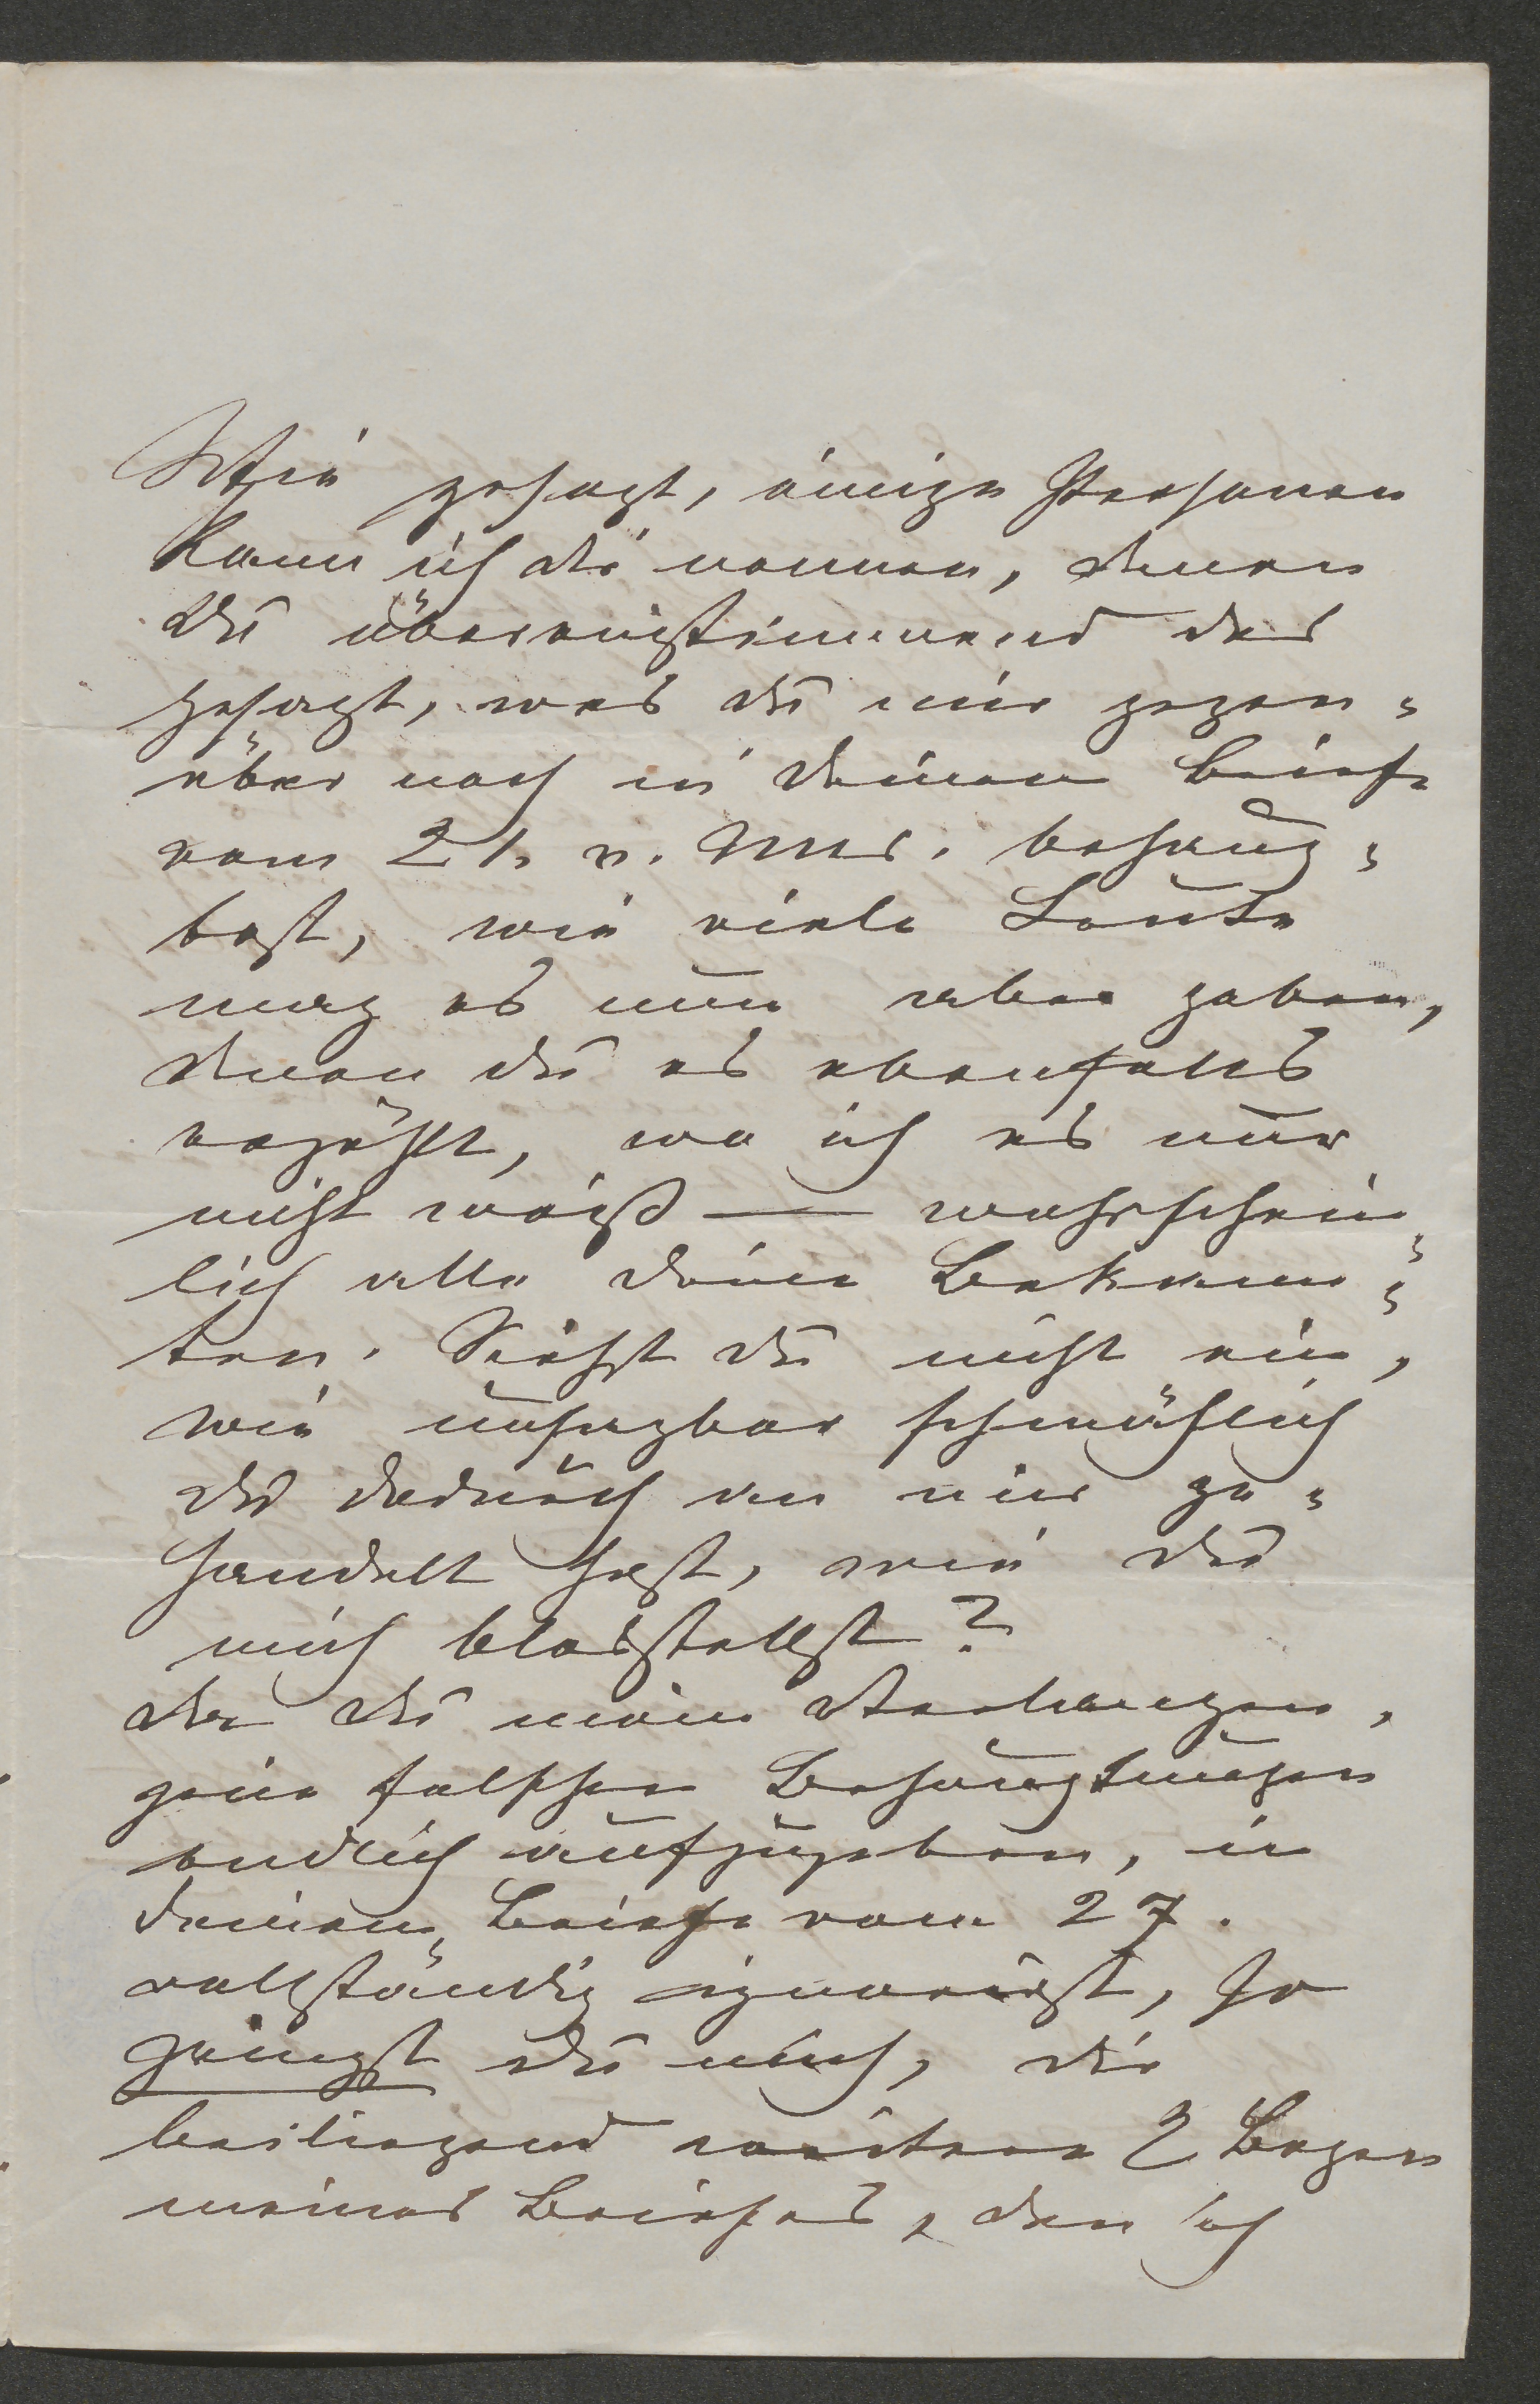 Wie gesagt, einige Personen
kann ich dir nennen, denen
Du übereinstimmend das
gesagt, was du mir gegen-
über noch in deinem Briefe
vom 21. v. Mts. behaup-
test, wie viele Leute
mag es nun aber geben,
denen du es ebenfalls
erzählt, wo ich es nur
nicht weiß — wahrschein-
lich alle deine Bekann-
ten. Siehst du nicht ein,
wie unsagbar schmählich
du dadurch an mir ge-
handelt hast, wie du
mich blosstellst?
Da du mein Verlangen,
jene falschen Behauptungen
endlich aufzugeben, in
deinem Briefe vom 27.
vollständig ignorirst, so
zwingst du mich, dir
beiliegend weitere 2 Bogen
meines Briefes, den ich